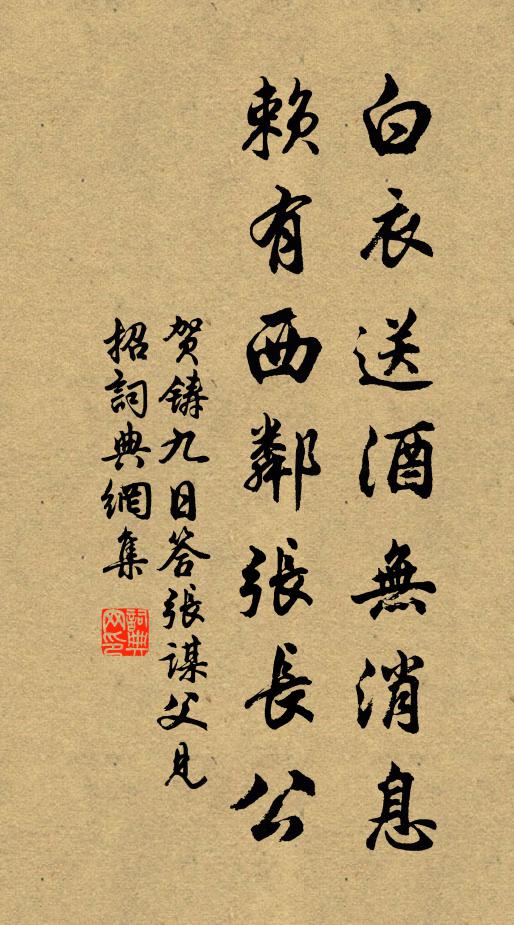 白衣送酒無消息
賴有西鄰張長公
賀鑄九日答張謀父見
招詞典網集
詞典
网印